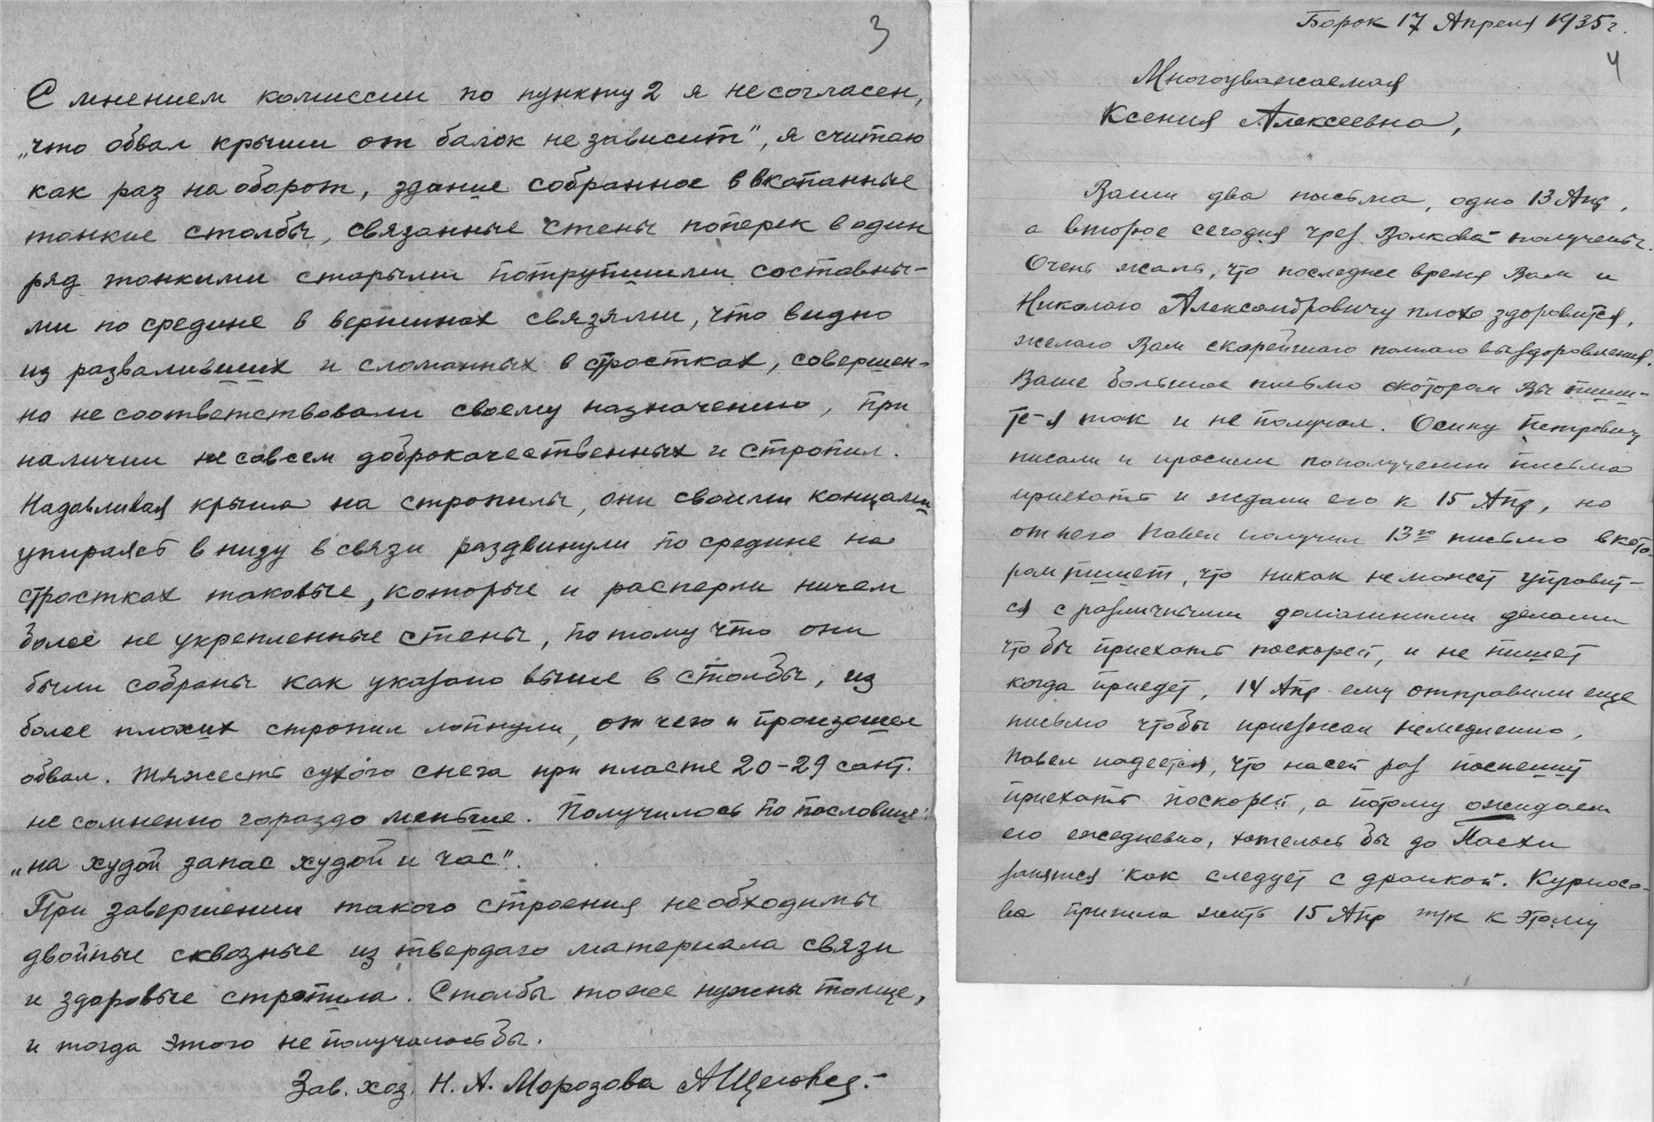 3
С мнением комиссии по пункту 2 я не согласен,
„что обвал крыши от балок не зависит", я считаю
как раз на оборот, здание собранное в вкопанные
тонкие столбы, связанные стены поперек в один
ряд тонкими старыми потрупшими составны-
ми по средине в вершинах связями, что видно
из развалившихся и сломанных в сростках, совершен-
но не соответствовали своему назначению, при
наличии не совсем доброкачественных и стропил.
Надавливая крыша на стропилы, они своими концами
упираясь в низу в связи раздвинули по средине на
сростках таковые, которые и расперли ничем
более не укрепленные стены, потому что они
были собраны как указано выше в столбы, из
более плохих стропил лопнули, от чего и произошел
обвал. Тяжесть сухого снега при пласте 20-29 сант.
не сомненно гораздо меньше. Получилось по пословице:
„на худой запас худой и час".
При завершении такого строения необходимы
двойные сквозные из твердаго материала связи
и здоровые стропила. Столбы тоже нужны толще,
и тогда этого не получилось бы.
Зав. хоз. Н. А. Морозова
Борок 17 Апреля 1935 г.
4
Многоуважаемая
Ксения Алексеевна,
Ваши два письма, одно 13 Апр,
а второе сегодня чрез Волковай получены.
Очень жаль, что последнее время Вам и
Николаю Александровичу плохо здоровится,
желаю Вам скорейшаго полнаго выздоровления.
Ваше большое письмо о котором Вы пиши-
те я так и не получал. Осипу Петровичу
писали и просили по получении письма
приехать и ждали его к 15 Апр, но
от него Павел получил 13го письмо в кото-
ром пишет, что никак не может управит-
ся с различными домашними делами
что бы приехать поскорей, и не пишет
когда приедет, 14 Апр ему отправили еще
письмо чтобы приезжал немедленно,
Павел надеется, что на сей раз поспешит
приехать поскорей, а потому ожидаем
его ежедневно, хотелось бы до Пасхи
заняться как следует с дранкой. Курносо-
ва пришла жить 15 Апр т/к к этому